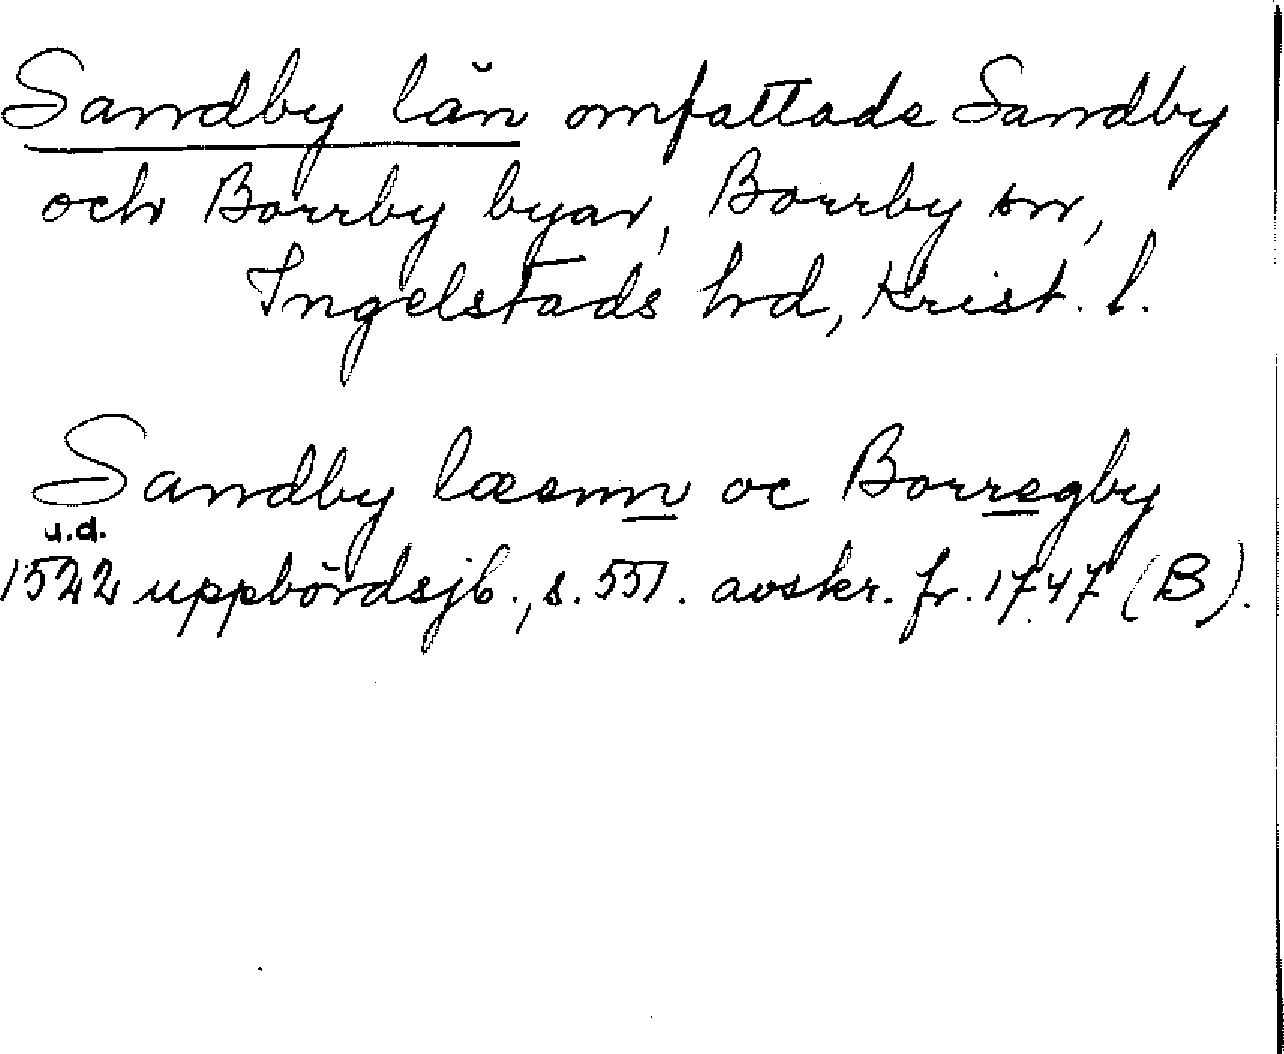 Sandby län omfattade Sandby
och Borrby byar, Borrby sn,
Ingelstads hd, Krist. l.
Sandby læenn oc Borregby
u.d.
1522 uppbördsjb., s. 551. avskr. fr. 1747 (B).